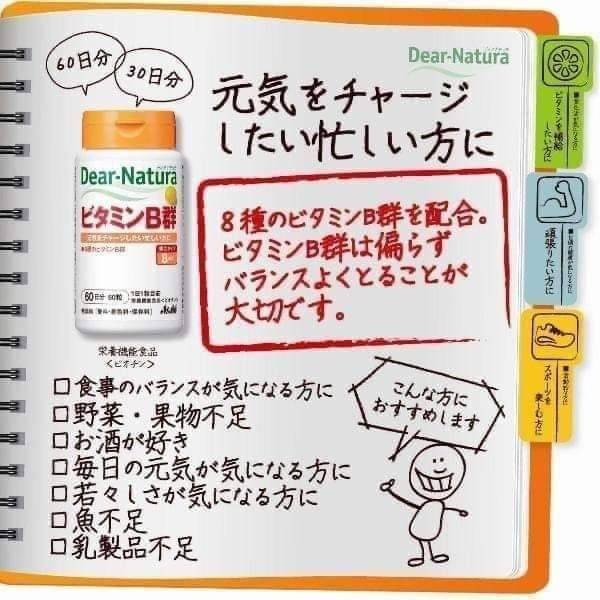 60日分
30日分
Dear-Natura
元気をチャージ
したい忙しい方に
Dear-Natura
ビタミンB群
元気をチャージしたい忙しい方に
60日分 60粒
Asahi
栄養機能食品
<ビオチン>
8種のビタミンB群を配合。
ビタミンB群は偏らず
バランスよくとることが
大切です。
□食事のバランスが気になる方に
□野菜・果物不足
□お酒が好き
□毎日の元気が気になる方に
□若々しさが気になる方に
□魚不足
□乳製品不足
こんな方に
おすすめします
ビタミンを補給
したい方に
頑張りたい方に
スポーツを
楽しむ方に